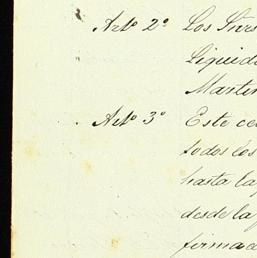 Arto 2o Los Sres
Liquida
Martin
Arto 3o Este ce
todos los
hasta la
desde la
firma